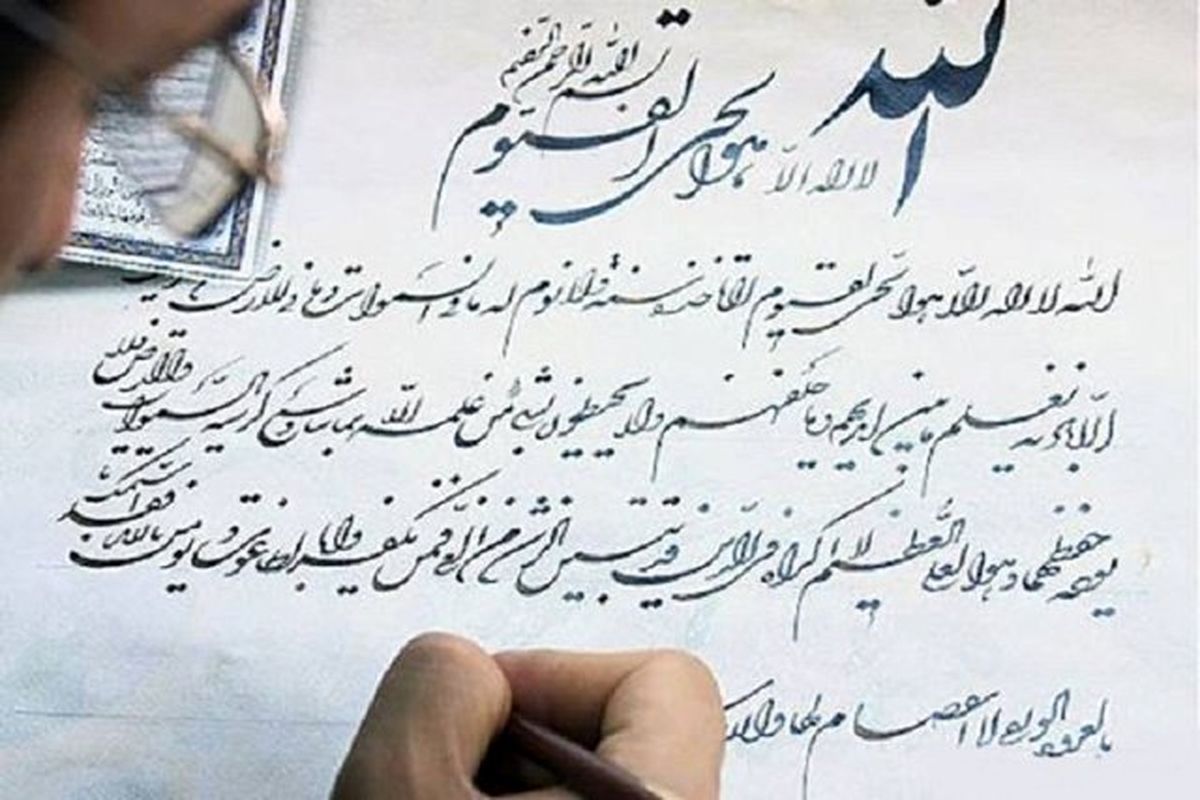 بسم الله الرحمن الرحیم
الله لا اله الا هو الحی القیوم
الله لا اله الا هو الحی القیوم لا تاخذه سنة و لا نوم له ما فی السموات و ما فی الارض
الا باذنه یعلم ما بین ایدیهم و ما خلفهم و لا یحیطون بشیء من علمه الا بما شاء وسع کرسیه السموات والارض ولا
یوده حفظهما و هو العلی العظیم لا اکراه فی الدین قد تبین الرشد من الغی فمن یکفر بالطاغوت و یومن بالله فقد استمسک
بالعروه الوثقی لا انفصام لها والله